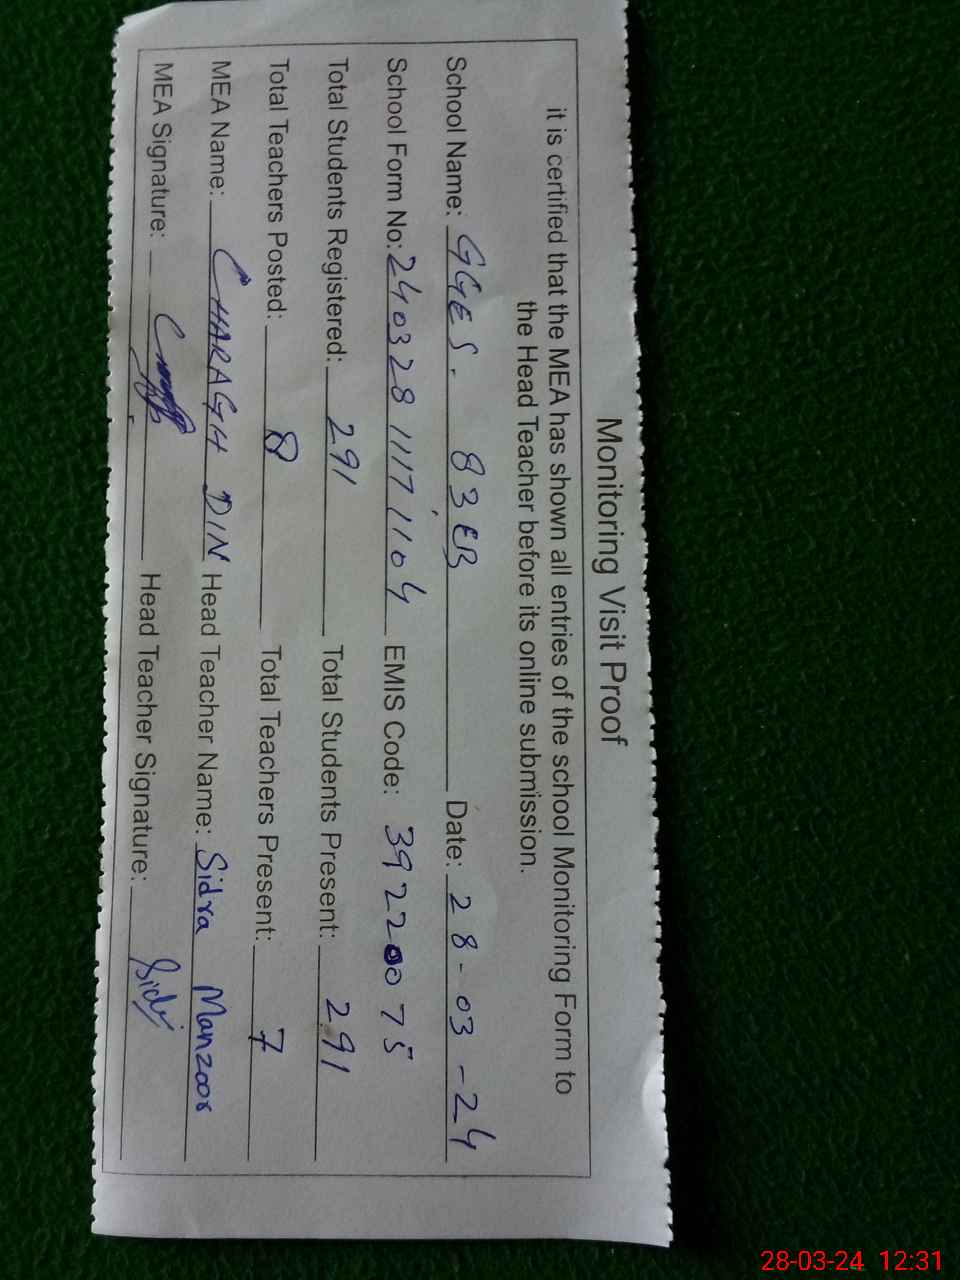 Monitoring Visit Proof
it is certified that the MEA has shown all entries of the school Monitoring Form to
the Head Teacher before its online submission.
School Name: GGES. 83 EB Date: 28-03-24
School Form No: 240328 11171104 EMIS Code: 39220075
Total Students Registered: 291 Total Students Present: 291
Total Teachers Posted: 8 Total Teachers Present: 7
MEA Name: CHARAGH DIN Head Teacher Name: Sidra Manzoor
MEA Signature: Head Teacher Signature: Sidra
28-03-24 12:31